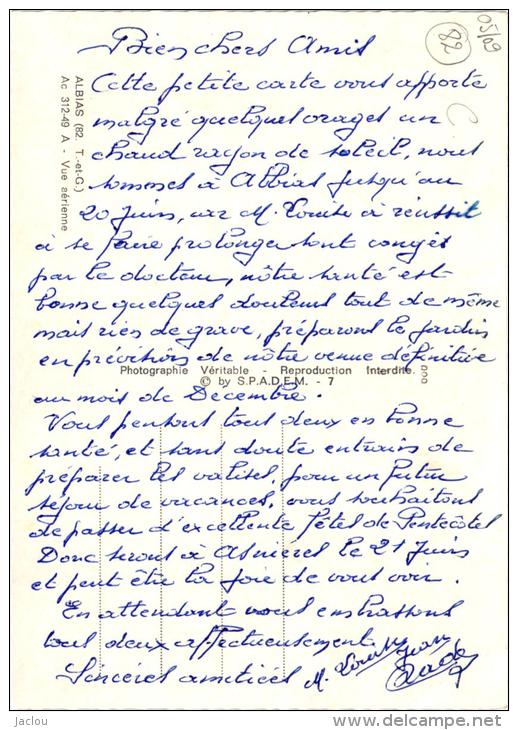 05/09
82
Bien chers Amis
Cette petite carte vous apporte
malgré quelques orages un
chaud rayon de soleil, nous
sommes à Albias jusqu'au
20 Juin, car M. Louise à réussit
à se faire prolonger sont congés
par le docteur, nôtre santé est
bonne quelques douleurs tout de même
mais rien de grave, préparons le jardin
en prévision de nôtre venue définitive
au mois de Decembre.
Vous pensons tous deux en bonne
santé, et sans doute entrains de
préparer les valises, pour un futur
séjour de vacances, vous souhaitons
de passer d'excellente fêtes de Pentecôtes
Donc serons à Asnières le 21 Juin
et peut être la joie de vous voir.
En attendant vous embrassons
tous deux affectueusement
Sincères amitiées M. Louise Jean
ALBIAS (82. T.-et-G.)
Ac 312-49 A - Vue aérienne
Photographie Véritable - Reproduction Interdite.
© by S.P.A.D.E.M. - 7
© jaclou
delcampe.net